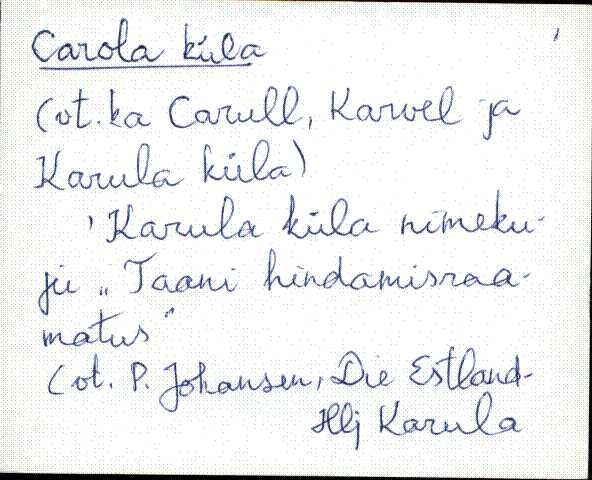 Carola küla
(vt. ka Carull, Karvel ja
Karula küla)
' Karula küla nimeku-
ju „Taani hindamisraa-
matus"
(vt. P. Johansen, Die Estland-
Hlj Karula